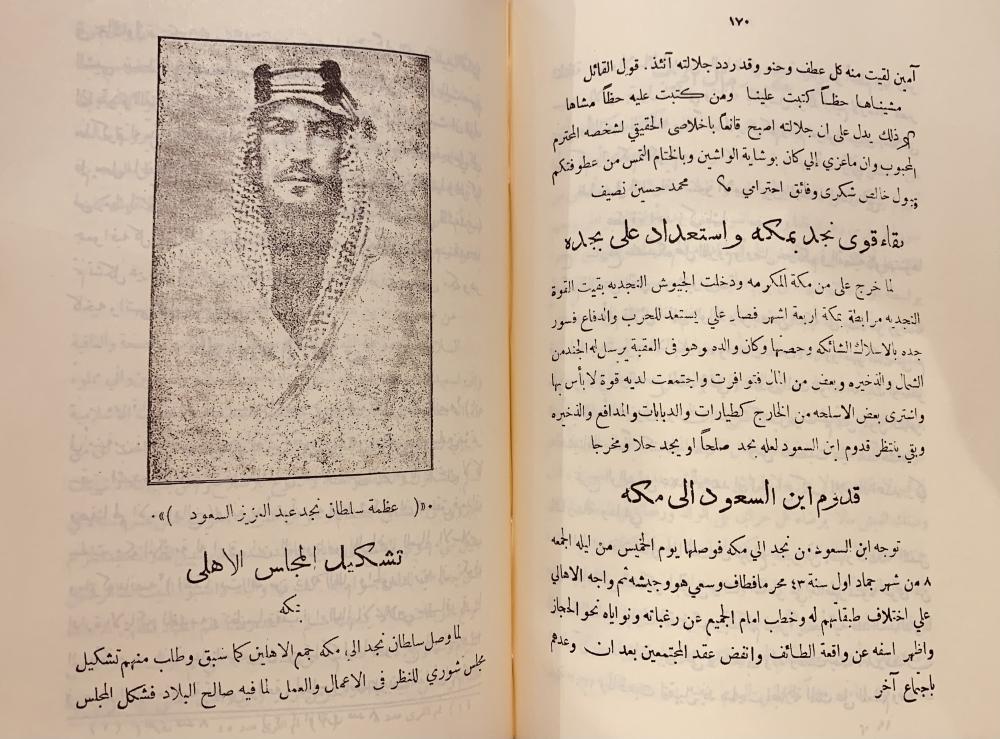 ١٧٠
آمين لقيت منه كل عطف وحنو وقد ردد جلالته آنئذ . قول القائل
مشيناها خطاً كتبت علينا ومن كتبت عليه خطاً مشاها
وذلك يدل على ان جلالته اصبح قانعاً باخلاصى الحقيقي لشخصه المحترم
المحبوب وان ماعزي إلي كان بوشاية الواشين وبالختام التمس من عطوفتكم
قبول خالص شكرى وفائق احترامي م؟ محمد حسين نصيف
بقاء قوى نجد بمكه واستعداد على بجده
لما خرج على من مكة المكرمه ودخلت الجيوش النجديه بقيت القوة
النجديه مرابطة بمكة اربعة اشهر فصار علي يستعد للحرب والدفاع فسور
جده بالاسلاك الشائكه وحصنها وكان والده وهو فى العقبة يرسل له الجند من
الشمال والذخيره وبعض من المال فتوافرت واجتمعت لديه قوة لا بأس بها
واشترى بعض الاسلحه من الخارج كطيارات والدبابات والمدافع والذخيره
وبقي ينتظر قدوم ابن السعود لعله يجد صلحاً او يجد حلا ومخرجا
قدوم ابن السعود الى مكه
توجه ابن السعود من نجد الي مكه فوصلها يوم الخميس من ليله الجمعه
٨ من شهر جماد اول سنة ٤٣ محرما فطاف وسعي هو وجيشه ثم واجه الاهالي
علي اختلاف طبقاتهم له وخطب امام الجميع عن رغباته ونواياه نحو الحجاز
واظهر اسفه عن واقعة الطائف وانفض عقد المجتمعين بعد ان وعدهم
باجتماع آخر
«( عظمة سلطان نجد عبد العزيز السعود )»
تشكيل المجلس الاهلى
بمكه
لما وصل سلطان نجد الى مكه جمع الاهلين كما سبق وطلب منهم تشكيل
مجلس شوري للنظر فى الاعمال والعمل لما فيه صالح البلاد فشكل المجلس